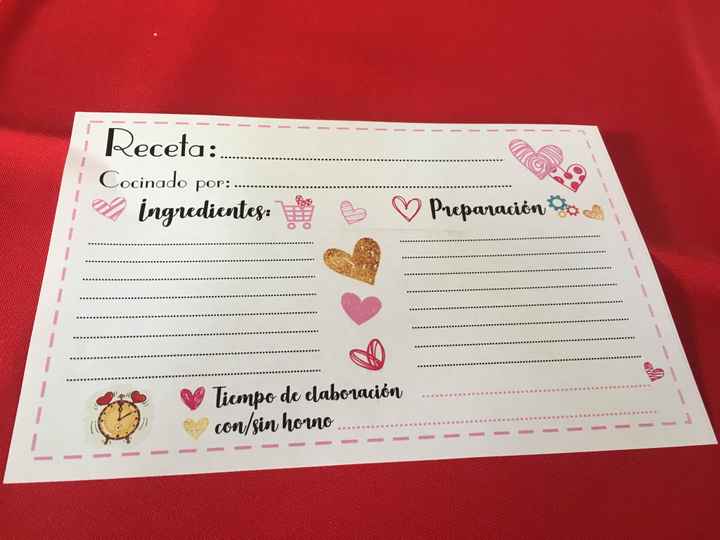 Receta:
Cocinado por:
Ingredientes:
Preparación
Tiempo de elaboración
con/sin horno